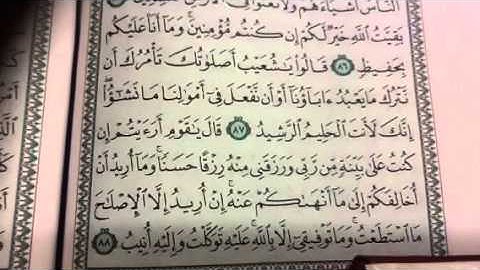 ٱلنَّاسَ أَشْيَآءَهُمْ وَلَا تَعْثَوْا۟ فِى ٱلْأَرْضِ
بَقِيَّتُ ٱللَّهِ خَيْرٌ لَّكُمْ إِن كُنتُم مُّؤْمِنِينَ ۚ وَمَآ أَنَا۠ عَلَيْكُم
بِحَفِيظٍ ٨٦ قَالُوا۟ يَٰشُعَيْبُ أَصَلَوٰتُكَ تَأْمُرُكَ أَن
نَّتْرُكَ مَا يَعْبُدُ ءَابَآؤُنَآ أَوْ أَن نَّفْعَلَ فِىٓ أَمْوَٰلِنَا مَا نَشَٰٓؤُا۟ ۖ
إِنَّكَ لَأَنتَ ٱلْحَلِيمُ ٱلرَّشِيدُ ٨٧ قَالَ يَٰقَوْمِ أَرَءَيْتُمْ إِن
كُنتُ عَلَىٰ بَيِّنَةٍ مِّن رَّبِّى وَرَزَقَنِى مِنْهُ رِزْقًا حَسَنًا ۚ وَمَآ أُرِيدُ أَنْ
أُخَالِفَكُمْ إِلَىٰ مَآ أَنْهَىٰكُمْ عَنْهُ ۚ إِنْ أُرِيدُ إِلَّا ٱلْإِصْلَٰحَ
مَا ٱسْتَطَعْتُ ۚ وَمَا تَوْفِيقِىٓ إِلَّا بِٱللَّهِ ۚ عَلَيْهِ تَوَكَّلْتُ وَإِلَيْهِ أُنِيبُ ٨٨